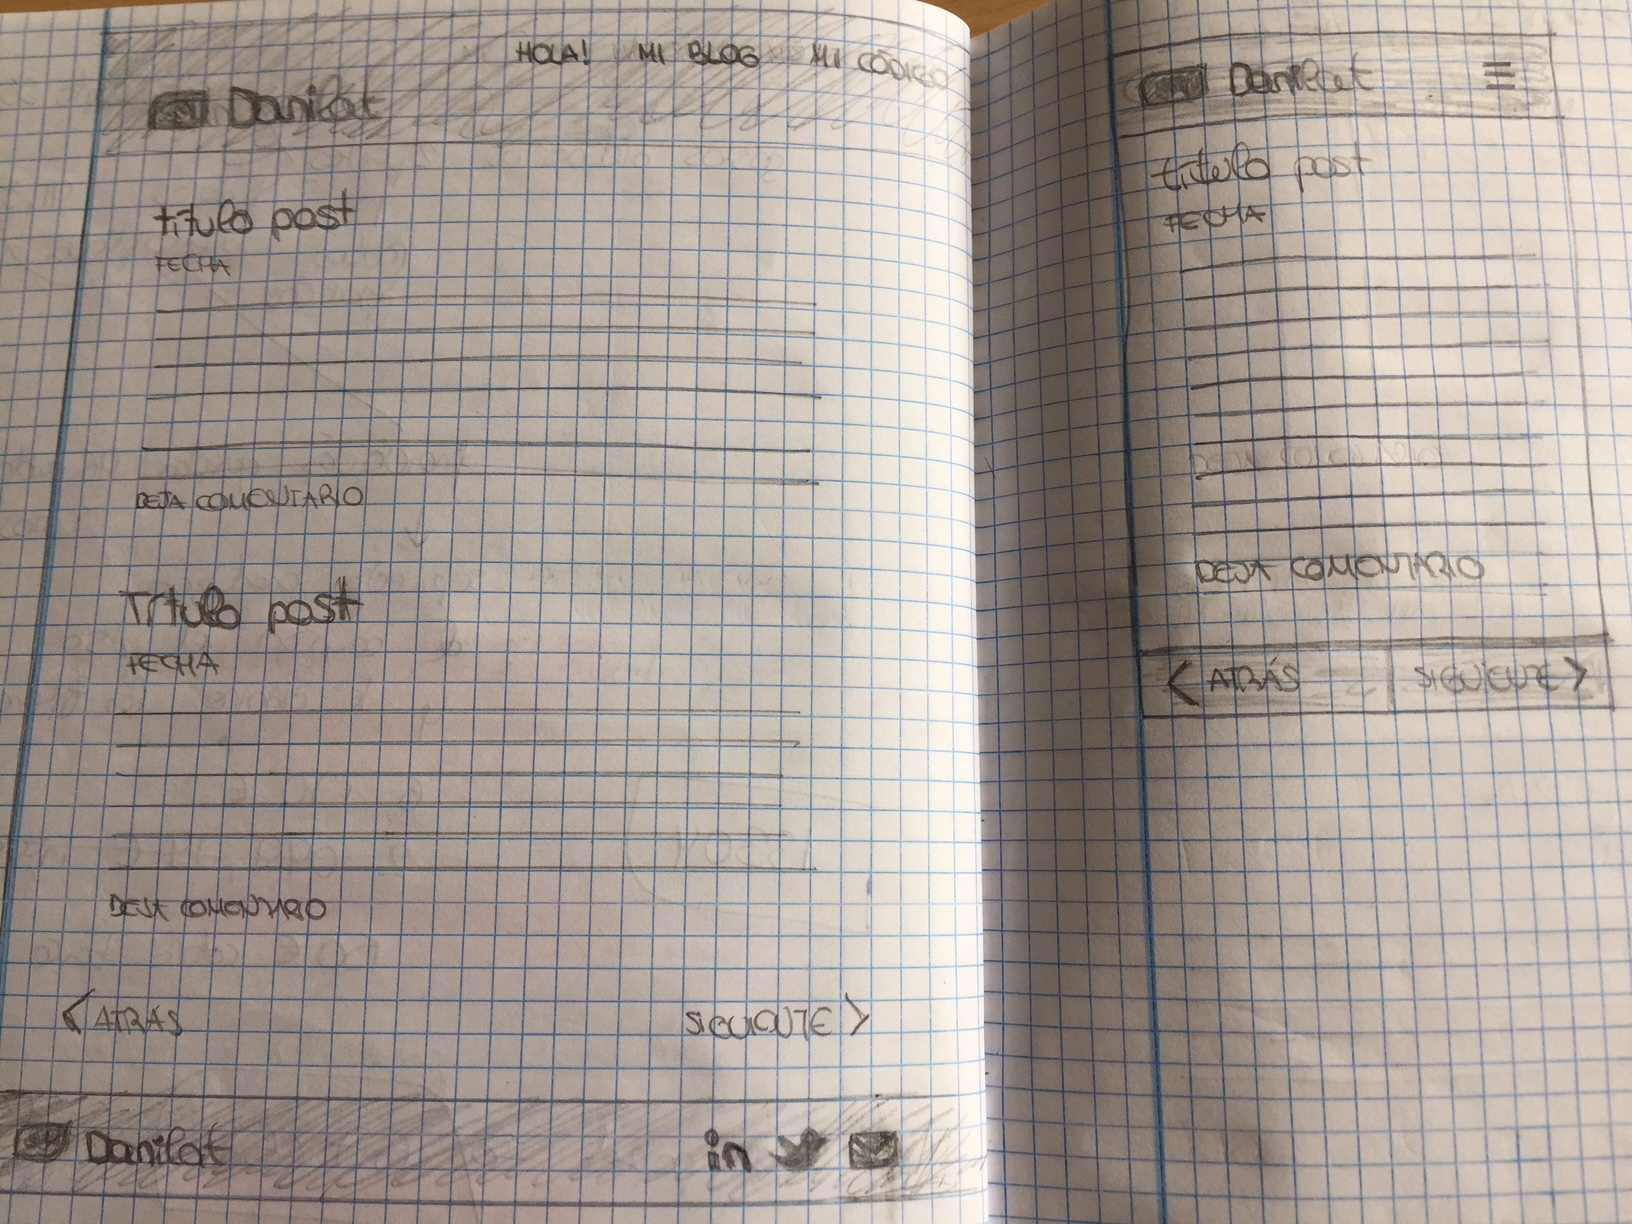 HOLA! MI BLOG MI CÓDIGO
Danilat
título post
FECHA
DEJA COMENTARIO
Título post
FECHA
DEJA COMENTARIO
< ATRÁS SIGUIENTE >
Danilat in
Danilat
título post
FECHA
DEJA COMENTARIO
DEJA COMENTARIO
< ATRÁS SIGUIENTE >